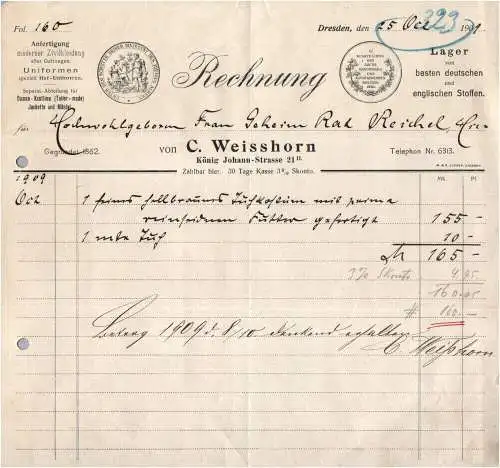 Fol. 160
Dresden, den 25 Oct 1909
293
Anfertigung
moderner Zivilkleidung
aller Gattungen.
Uniformen
speziell Hof-Uniformen.
Separat-Abteilung für
Damen-Kostüme (Tailor-made)
Jacketts und Mäntel.
Rechnung
Lager
von
besten deutschen
und
englischen Stoffen.
für Hochwohlgeboren Frau Geheim Rat Reichel, Hier
Gegründet 1862.
von C. Weisshorn
Telephon Nr. 6313.
König Johann-Strasse 21 II.
Zahlbar hier. 30 Tage Kasse 3% Skonto.
1909
Oct
1 feines hellbraunes Tuchkostüm mit prima
reinseidnen Futter gefertigt 155 -
1 mtr Tuch 10 -
M 165 -
3% Skonto 4.95
160.05
# 160.-
Betrag 1909 d. 8/10 dankend erhalten
C. Weißhorn